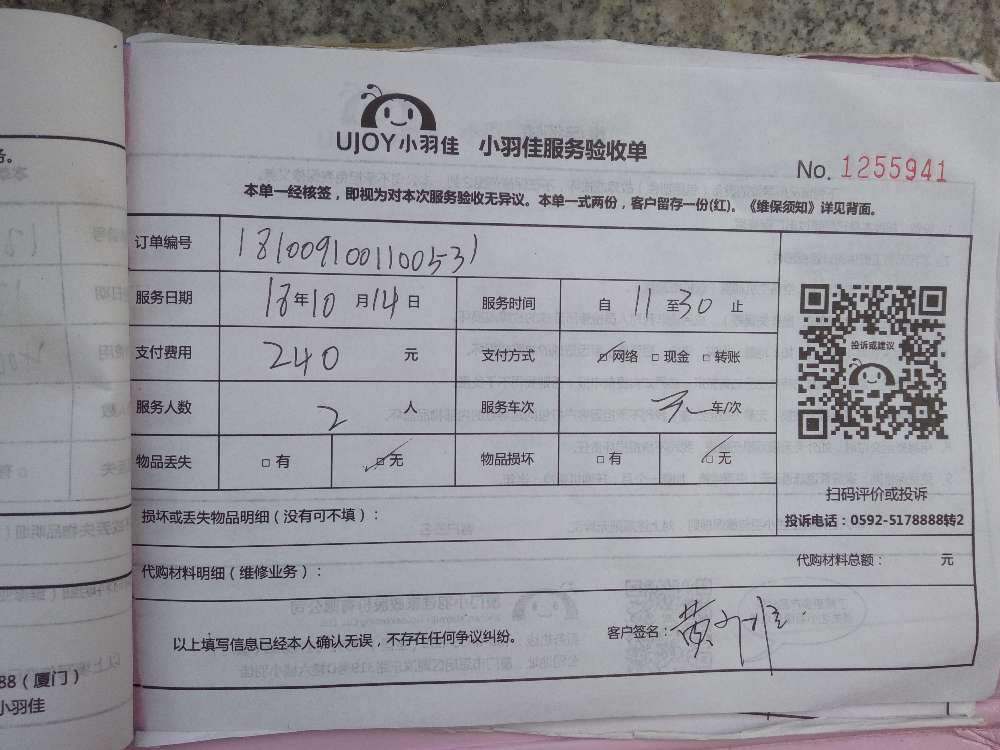 UJOY小羽佳 小羽佳服务验收单
No. 1255941
本单一经核签，即视为对本次服务验收无异议。本单一式两份，客户留存一份(红)。《维保须知》详见背面。
订单编号 1810091001100531
服务日期 18年10月14日 服务时间 自11至30止
支付费用 240 元 支付方式 网络 现金 转账
服务人数 2 人 服务车次 车/次
物品丢失 有 无 物品损坏 有 无
投诉或建议
扫码评价或投诉
投诉电话：0592-5178888转2
损坏或丢失物品明细（没有可不填）：
代购材料明细（维修业务）： 代购材料总额： 元
以上填写信息已经本人确认无误，不存在任何争议纠纷。 客户签名：黄
务。
88（厦门）
小羽佳